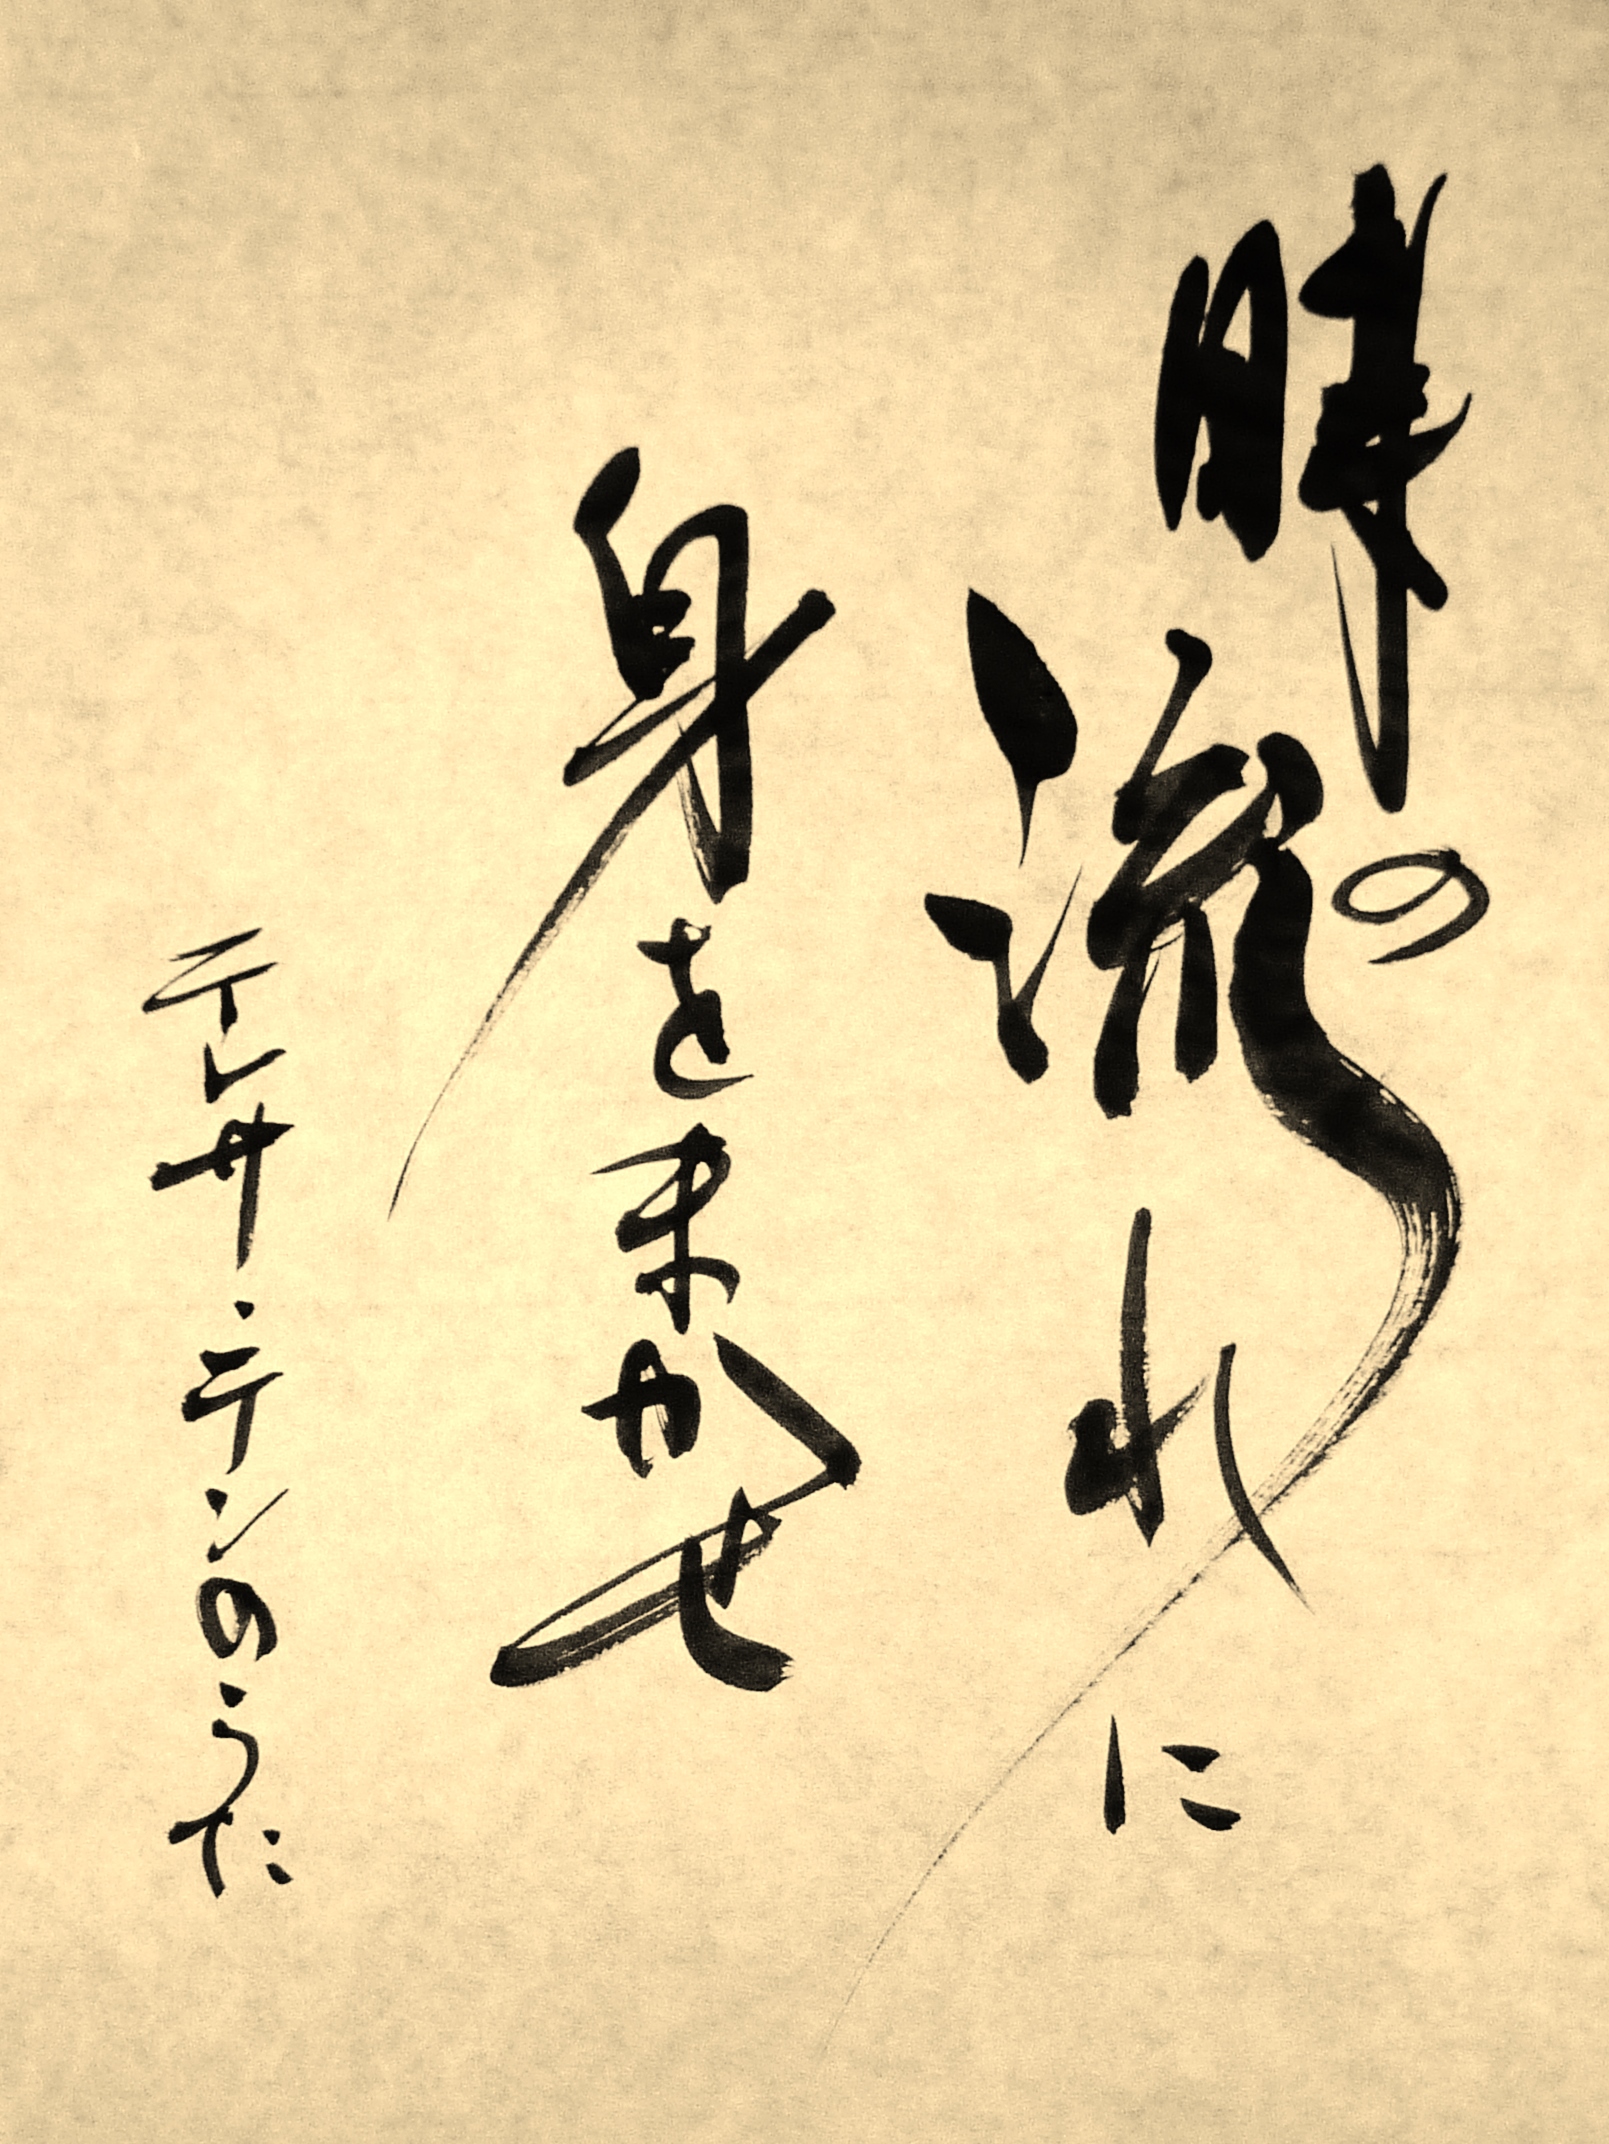 時の流れに
身をまかせ
テレサ・テンのうた